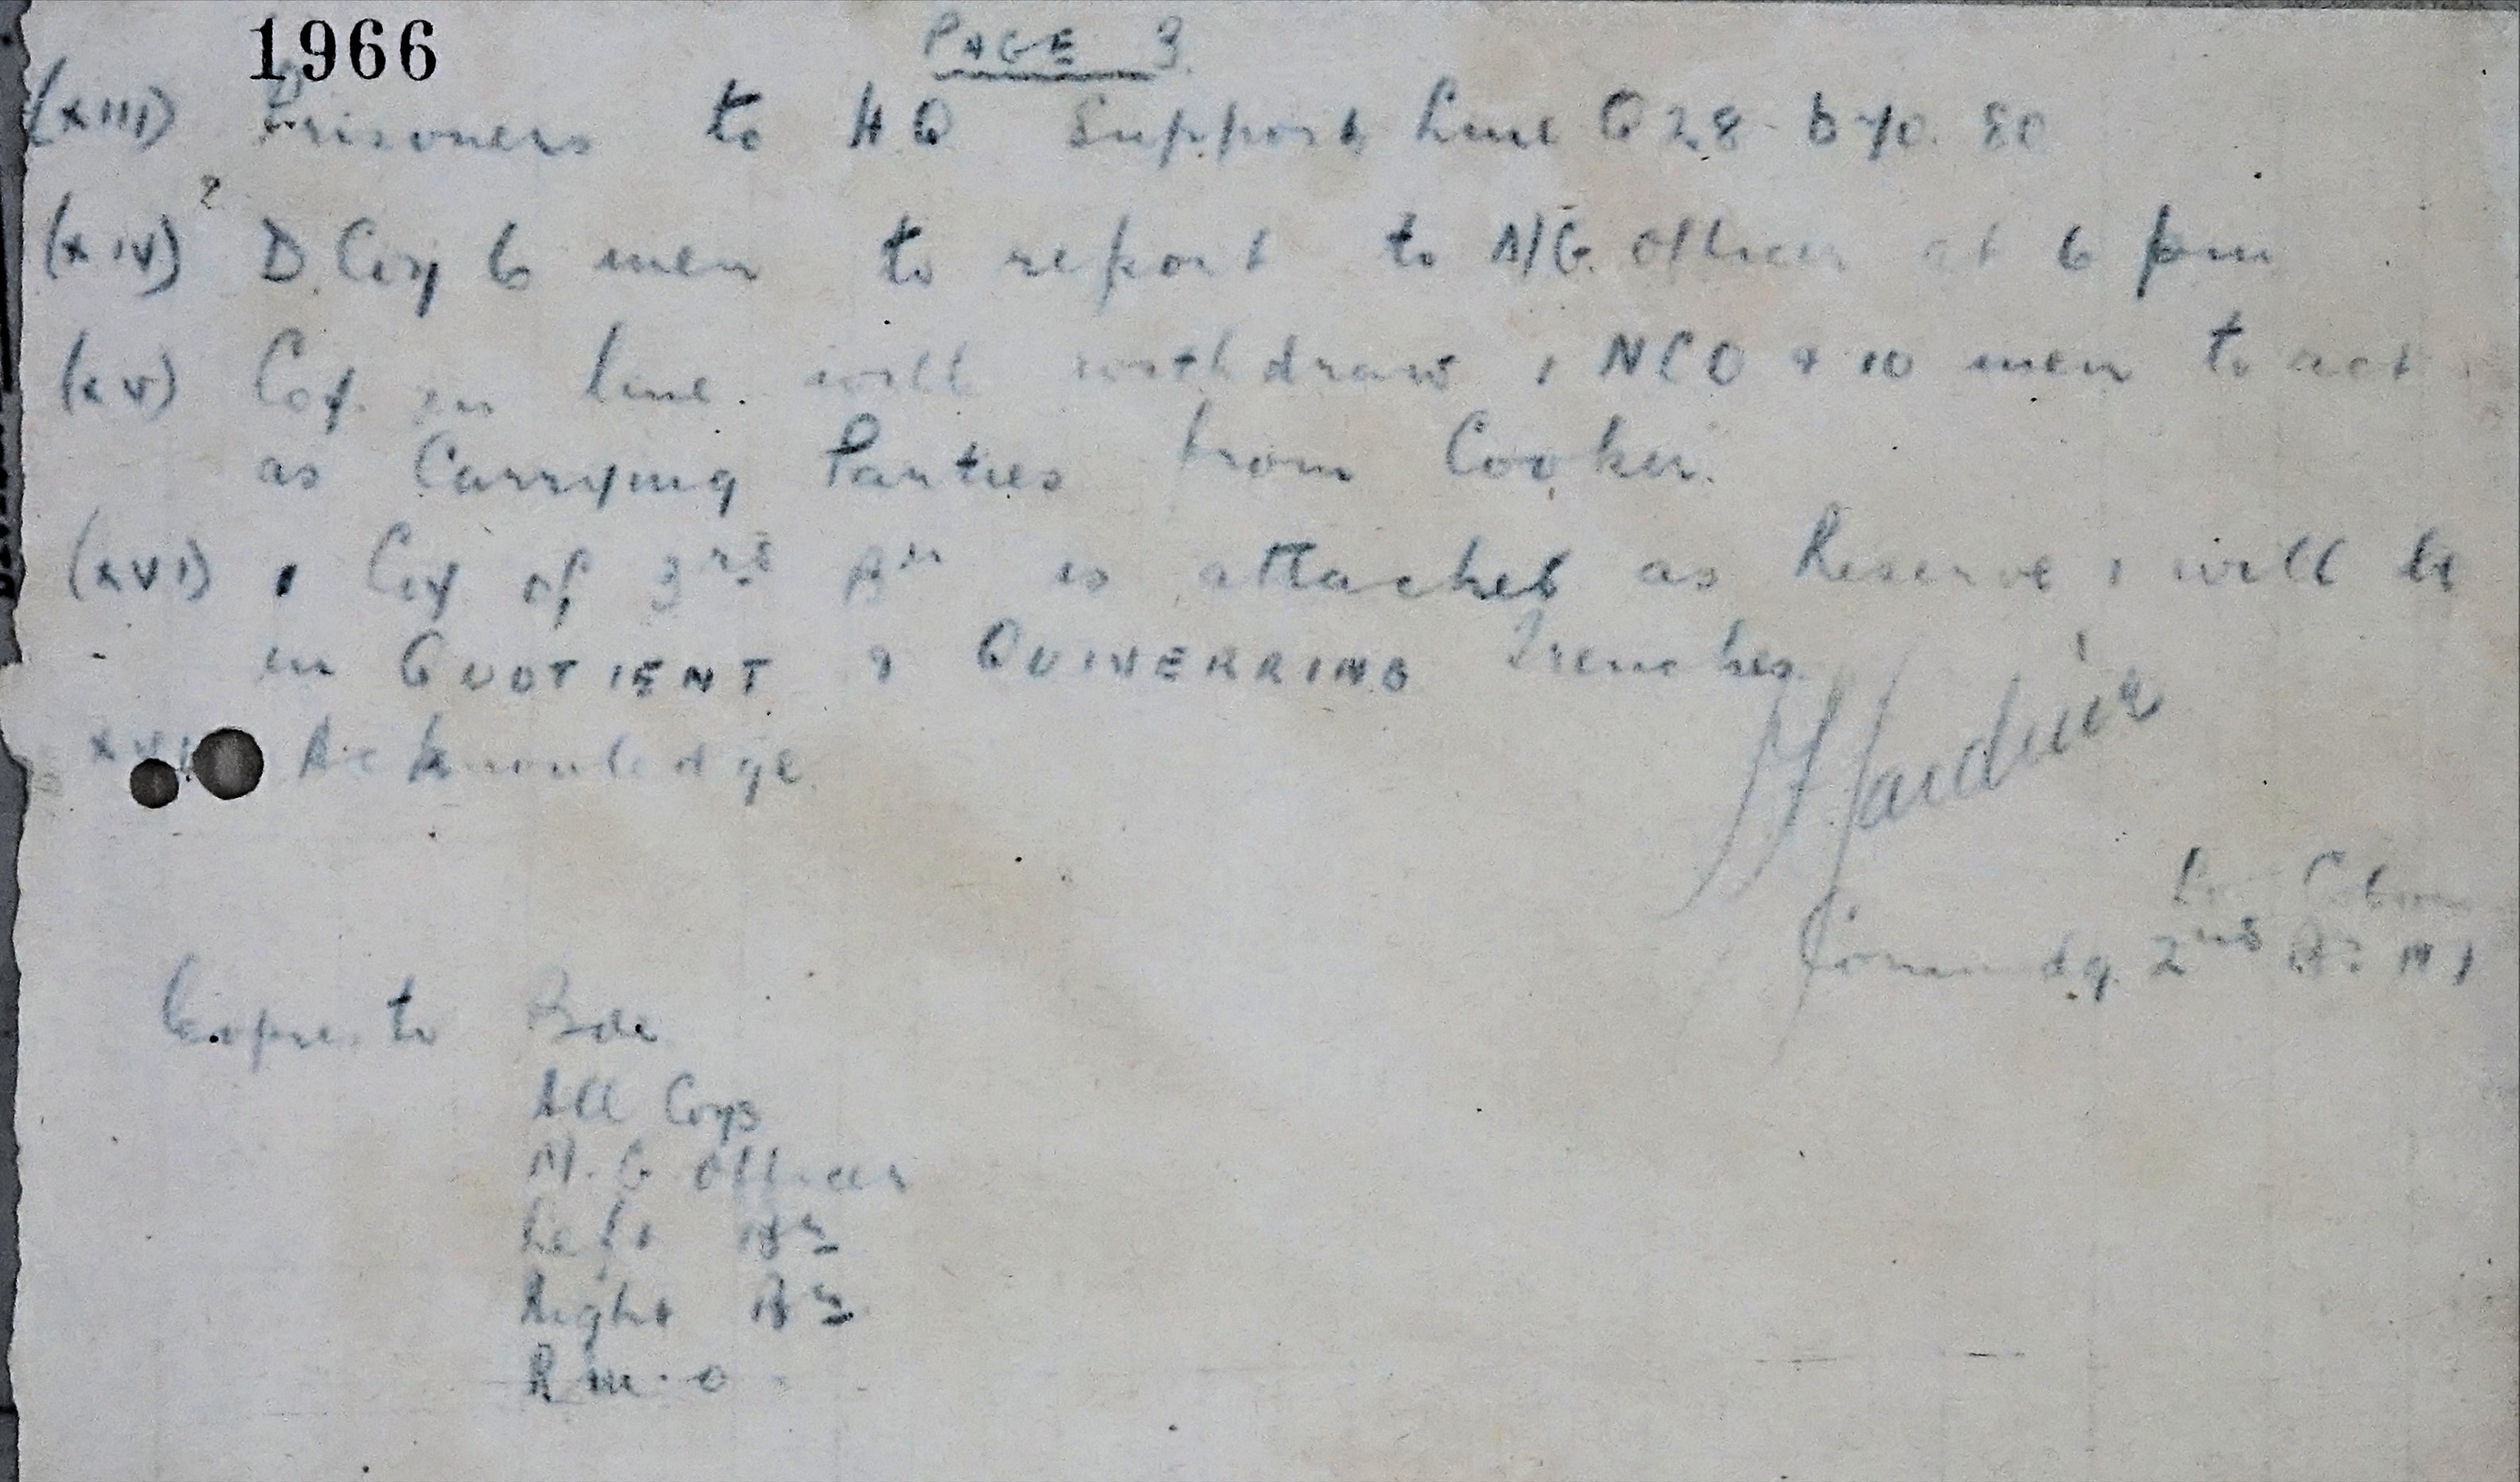 1966
PAGE 3.
(XIII) Prisoners to HQ Support Line Q 28 b 70. 80
(XIV) ? D. Coy 6 men to report to M/G. Officer at 6 pm
(XV) Coy. in line. will withdraw 1 NCO & 10 men to act
as Carrying Parties from Cooker.
(XVI) 1 Coy of 3rd Bn is attached as Reserve & will be
in QUOTIENT & QUIVERRING Trenches.
Acknowledge.
Commdg. 2nd Bn
Copies to Bde
All Coys
M. G Officer
Left Bn
Right Bn
R m. o